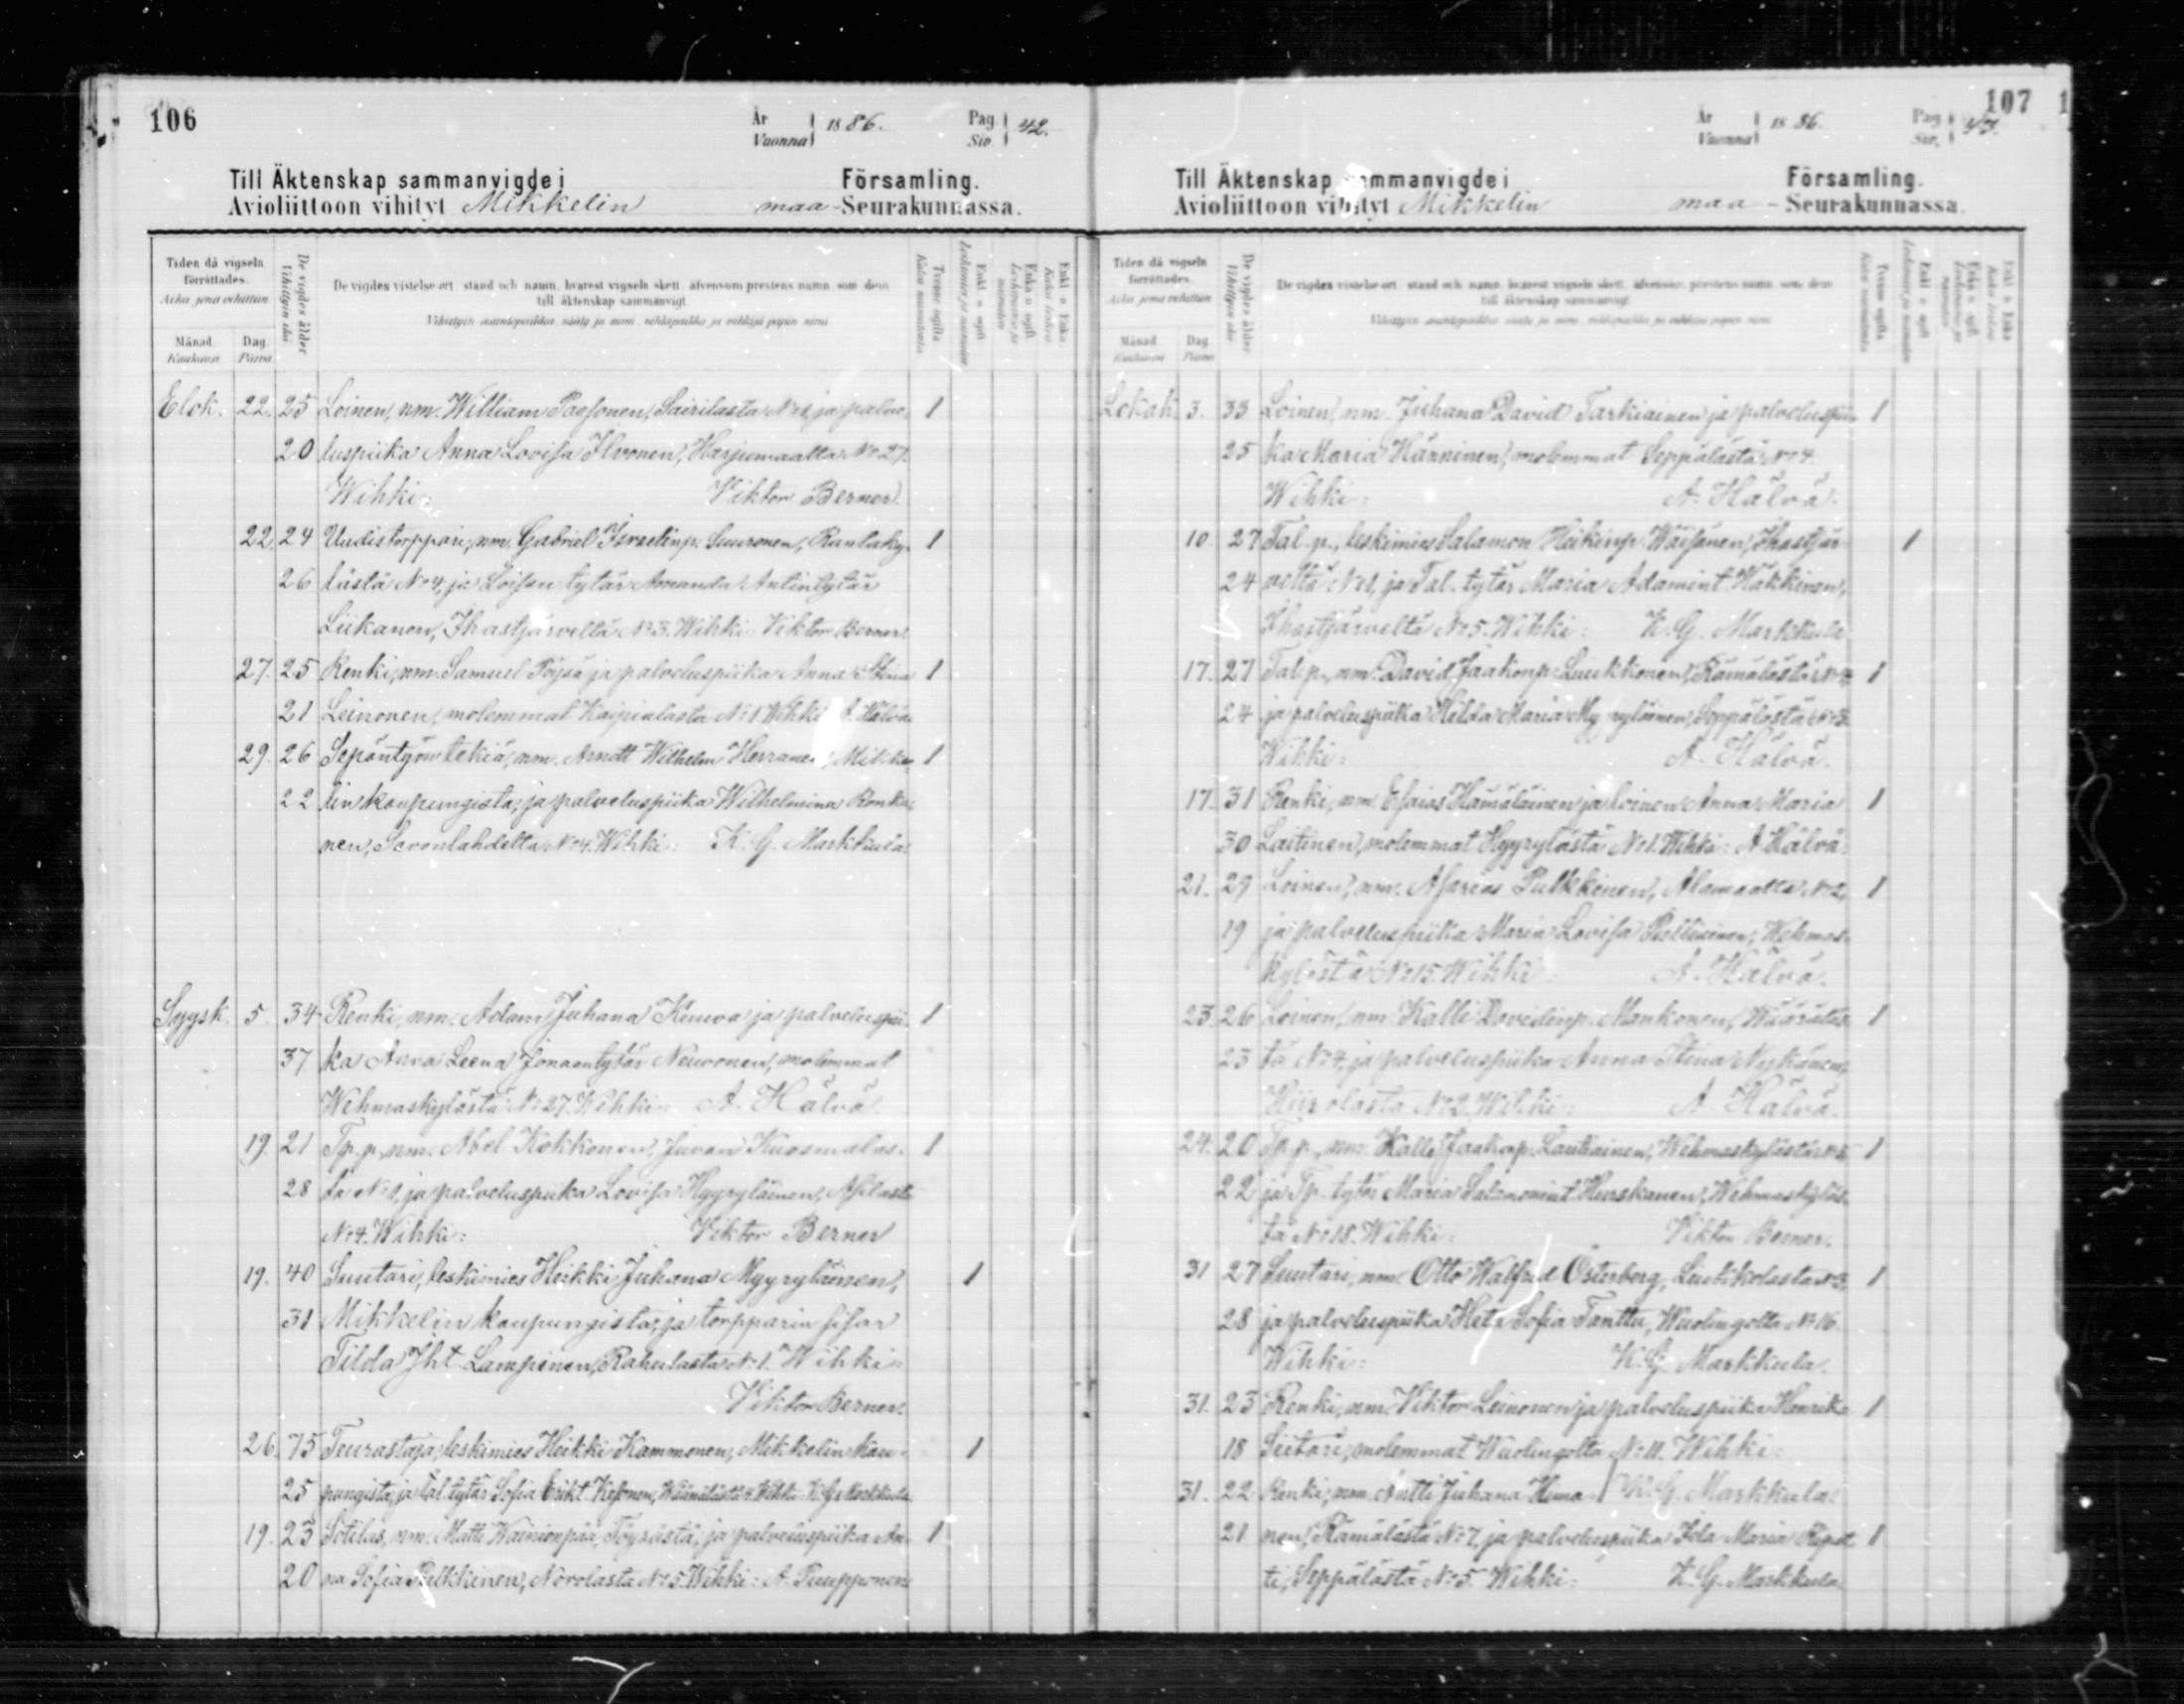 106
År
Vuonna
1886.
Pag.
Siv.
42.
Till Äktenskap sammanvigde i Församling.
Avioliittoon vihityt Mikkelin maa-Seurakunnassa.
Tiden då vigseln förrättades.
Aika, jona vihittiin
Månad. Dag.
Kuukausi Päivä
De vigdes ålder
Vihittyin ikä
De vigdes vistelse ort, stånd och namn, hvarest vigseln skett, äfvensom prestens namn, som dem
till äktenskap sammanvigt.
Vihittyin asuntopaikka, sääty ja nimi, vihkipaikka ja vihkijä papin nimi
Tvenne ogifta
Enkl. o. ogift
Enka o. ogift
Enkl. o. Enka
Elok. 22. 25 Loinen, nm. William Paasonen, Sairilasta No 1, ja palve- 1
20 luspiika Anna Lovisa Ilvonen, Harjumaalta No 27.
Wihki: Viktor Berner.
22. 24 Uudistorppari, nm. Gabriel Israelinp. Suuronen, Rantaky- 1
26 lästä No 4, ja Loisen tytär Amanda Antintytär
Liikanen, Ihastjärveltä No 3. Wihki: Viktor Berner.
27. 25 Renki, nm. Samuel Pöysä ja palveluspiika Anna Stina 1
21 Leinonen, molemmat Kaipialasta No 1. Wihki: A. Hälvä
29. 26 Sepäntyön tekiä, nm. Arndt Wilhelm Herranen, Mikke- 1
22 lin kaupungista, ja palveluspiika Wilhelmina Ronka-
nen, Savonlahdelta No 4. Wihki: K. G. Markkula.
Syysk. 5. 34 Renki, nm. Adam Juhana Kuuva ja palveluspii- 1
37 ka Anna Leena Jonaantytär Neuvonen, molemmat
Wehmaskylästä No 27. Wihki: A. Hälvä
19. 21 Tp. p., nm. Abel Kokkonen, Juvan Kuosmalas- 1
28 ta No 1, ja palveluspiika Lovisa Hyyryläinen,
No 4. Wihki: Viktor Berner
19. 40 Suutari, leskimies Heikki Juhana Myyryläinen, 1
31 Mikkelin kaupungista, ja torpparin sisar
Tilda Lampinen, Rahulasta No 1. Wihki:
Viktor Berner.
26. 75 Teurastaja, leskimies Heikki Kammonen, Mikkelin kau- 1
25 pungista, ja tal. tytär Sofia Erikt. Wihki: K. G. Markkula
19. 23 Sotilas, nm. Matti Wainionpää, Töysästä, ja palveluspiika An- 1
20 na Sofia Pulkkinen, Norolasta No 5. Wihki: A. Puupponen
107
År
Vuonna
1886.
Pag.
Siv.
43.
Till Äktenskap sammanvigde i Församling.
Avioliittoon vihityt Mikkelin maa-Seurakunnassa.
Tiden då vigseln förrättades.
Aika, jona vihittiin
Månad. Dag.
Kuukausi Päivä
De vigdes ålder
Vihittyin ikä
De vigdes vistelse ort, stånd och namn, hvarest vigseln skett, äfvensom prestens namn, som dem
till äktenskap sammanvigt.
Vihittyin asuntopaikka, sääty ja nimi, vihkipaikka ja vihkijä papin nimi
Tvenne ogifta
Enkl. o. ogift
Enka o. ogift
Enkl. o. Enka
Lokak. 3. 33 Loinen, nm. Juhana David Tarkiainen ja palveluspii- 1
25 ka Maria Hänninen, molemmat Seppälästä No 4.
Wihki: A. Hälvä.
10. 27 Tal. p., leskimies Salamon Heikinp. Wäisänen, Ihastjär- 1
24 veltä No 1, ja Tal. tytär Maria Adamint. Häkkinen,
Ihastjärveltä No 5. Wihki: K. G. Markkula
17. 27 Tal. p., nm. David Jaakonp. Luukkonen, Rämälästä No 1
24 ja palveluspiika Hilda Maria Myyryläinen, Seppälästä No 3.
Wihki: A. Hälvä.
17. 31 Renki, nm. Esaias Hämäläinen ja loinen Anna Maria 1
30 Laitinen, molemmat Hyyrylästä No 1. Wihki: A. Hälvä.
21. 29 Loinen, nm. Asarias Pulkkinen, Alamaalta No 2, 1
19 ja palveluspiika Maria Lovisa Wehmas-
kylästä No 15. Wihki: A. Hälvä.
23. 26 Loinen, nm. Kalle Davidinp. Mankonen, 1
23 tä No 4, ja palveluspiika Anna Stina Nykänen,
Hiirolasta No 2. Wihki: A. Hälvä.
24. 20 Tp. p., nm. Kalle Jaakonp. Lautiainen, Wehmaskylästä No 1
22 ja Tp. tytär Maria Salomonint. Hurskanen, Wehmaskyläs-
tä No 18. Wihki: Viktor Berner.
31 27 Suutari, nm. Otto Walfrid Österberg, Liukkolasta No 3, 1
28 ja palveluspiika Heta Sofia Tanttu, Wuolingolta No 16.
Wihki: K. G. Markkula.
31. 23 Renki, nm. Viktor Leinonen ja palveluspiika Henrika 1
18 Siitari, molemmat Wuolingolta No 11. Wihki:
K. G. Markkula.
31. 22 Renki, nm. Antti Juhana Huma-
21 nen, Rämälästä No 7, ja palveluspiika Ida Maria Ripat- 1
ti, Seppälästä No 5. Wihki: K. G. Markkula